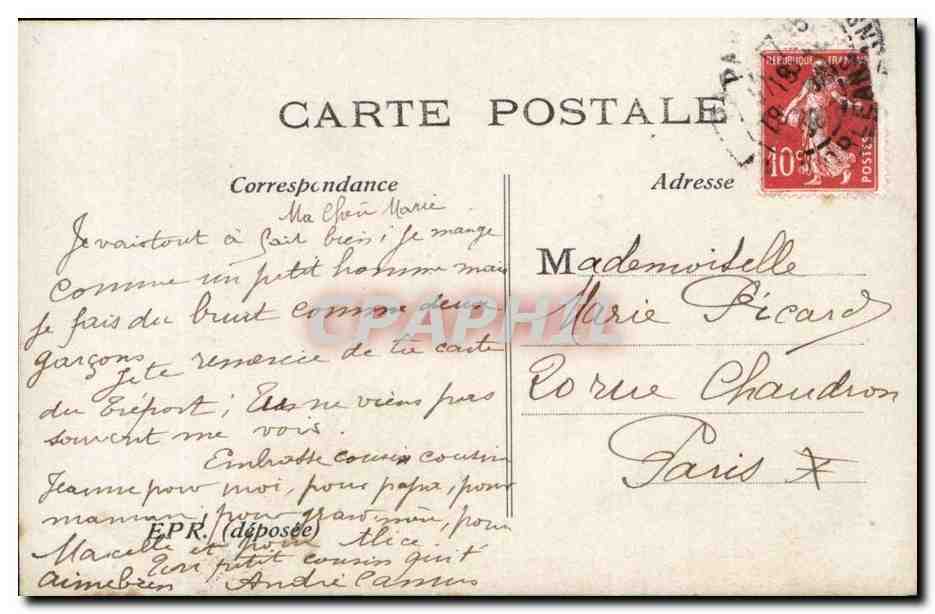 CARTE POSTALE
REPUBLIQUE FRANC
10c
POSTES
Correspondance
Adresse
Ma Chère Marie
Je vais tout à fait bien ; je mange
comme un petit homme mais
je fais du bruit comme deux
garçons. Je te remercie de ta carte
du Tréport ; tu ne viens pas
souvent me voir.
Embrasse cousin cousine
Jeanne pour moi, pour papa, pour
maman, pour grand-mère, pour
Marcelle et pour Alice.
EPR. (déposée)
Ton petit cousin qui t'
aime bien André Camus
Mademoiselle
Marie Picard
20 rue Chaudron
Paris
CPAPHIL